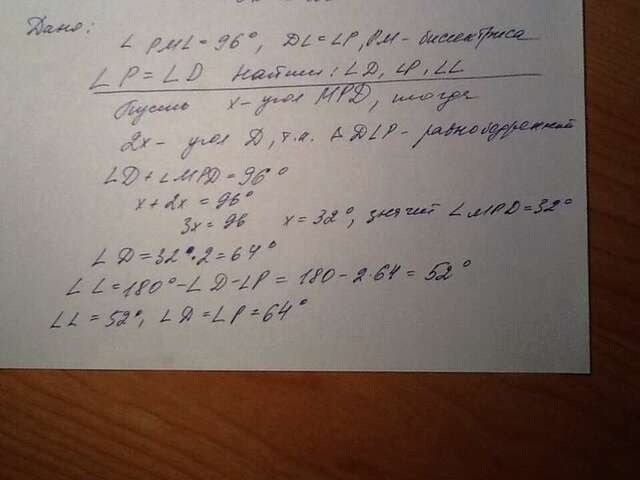 Дано:
∠ PML = 96°, DL = LP, PM - биссектриса
∠ P = ∠ D Найти: ∠D, ∠P, ∠L
Пусть x - угол MPD, тогда
2x - угол D, т.к. △ DLP - равнобедренный
∠D + ∠MPD = 96°
x + 2x = 96°
3x = 96 x = 32°, значит ∠ MPD = 32°
∠ D = 32°·2 = 64°
∠ L = 180° - ∠ D - ∠P = 180 - 2·64 = 52°
∠L = 52°, ∠D = ∠P = 64°